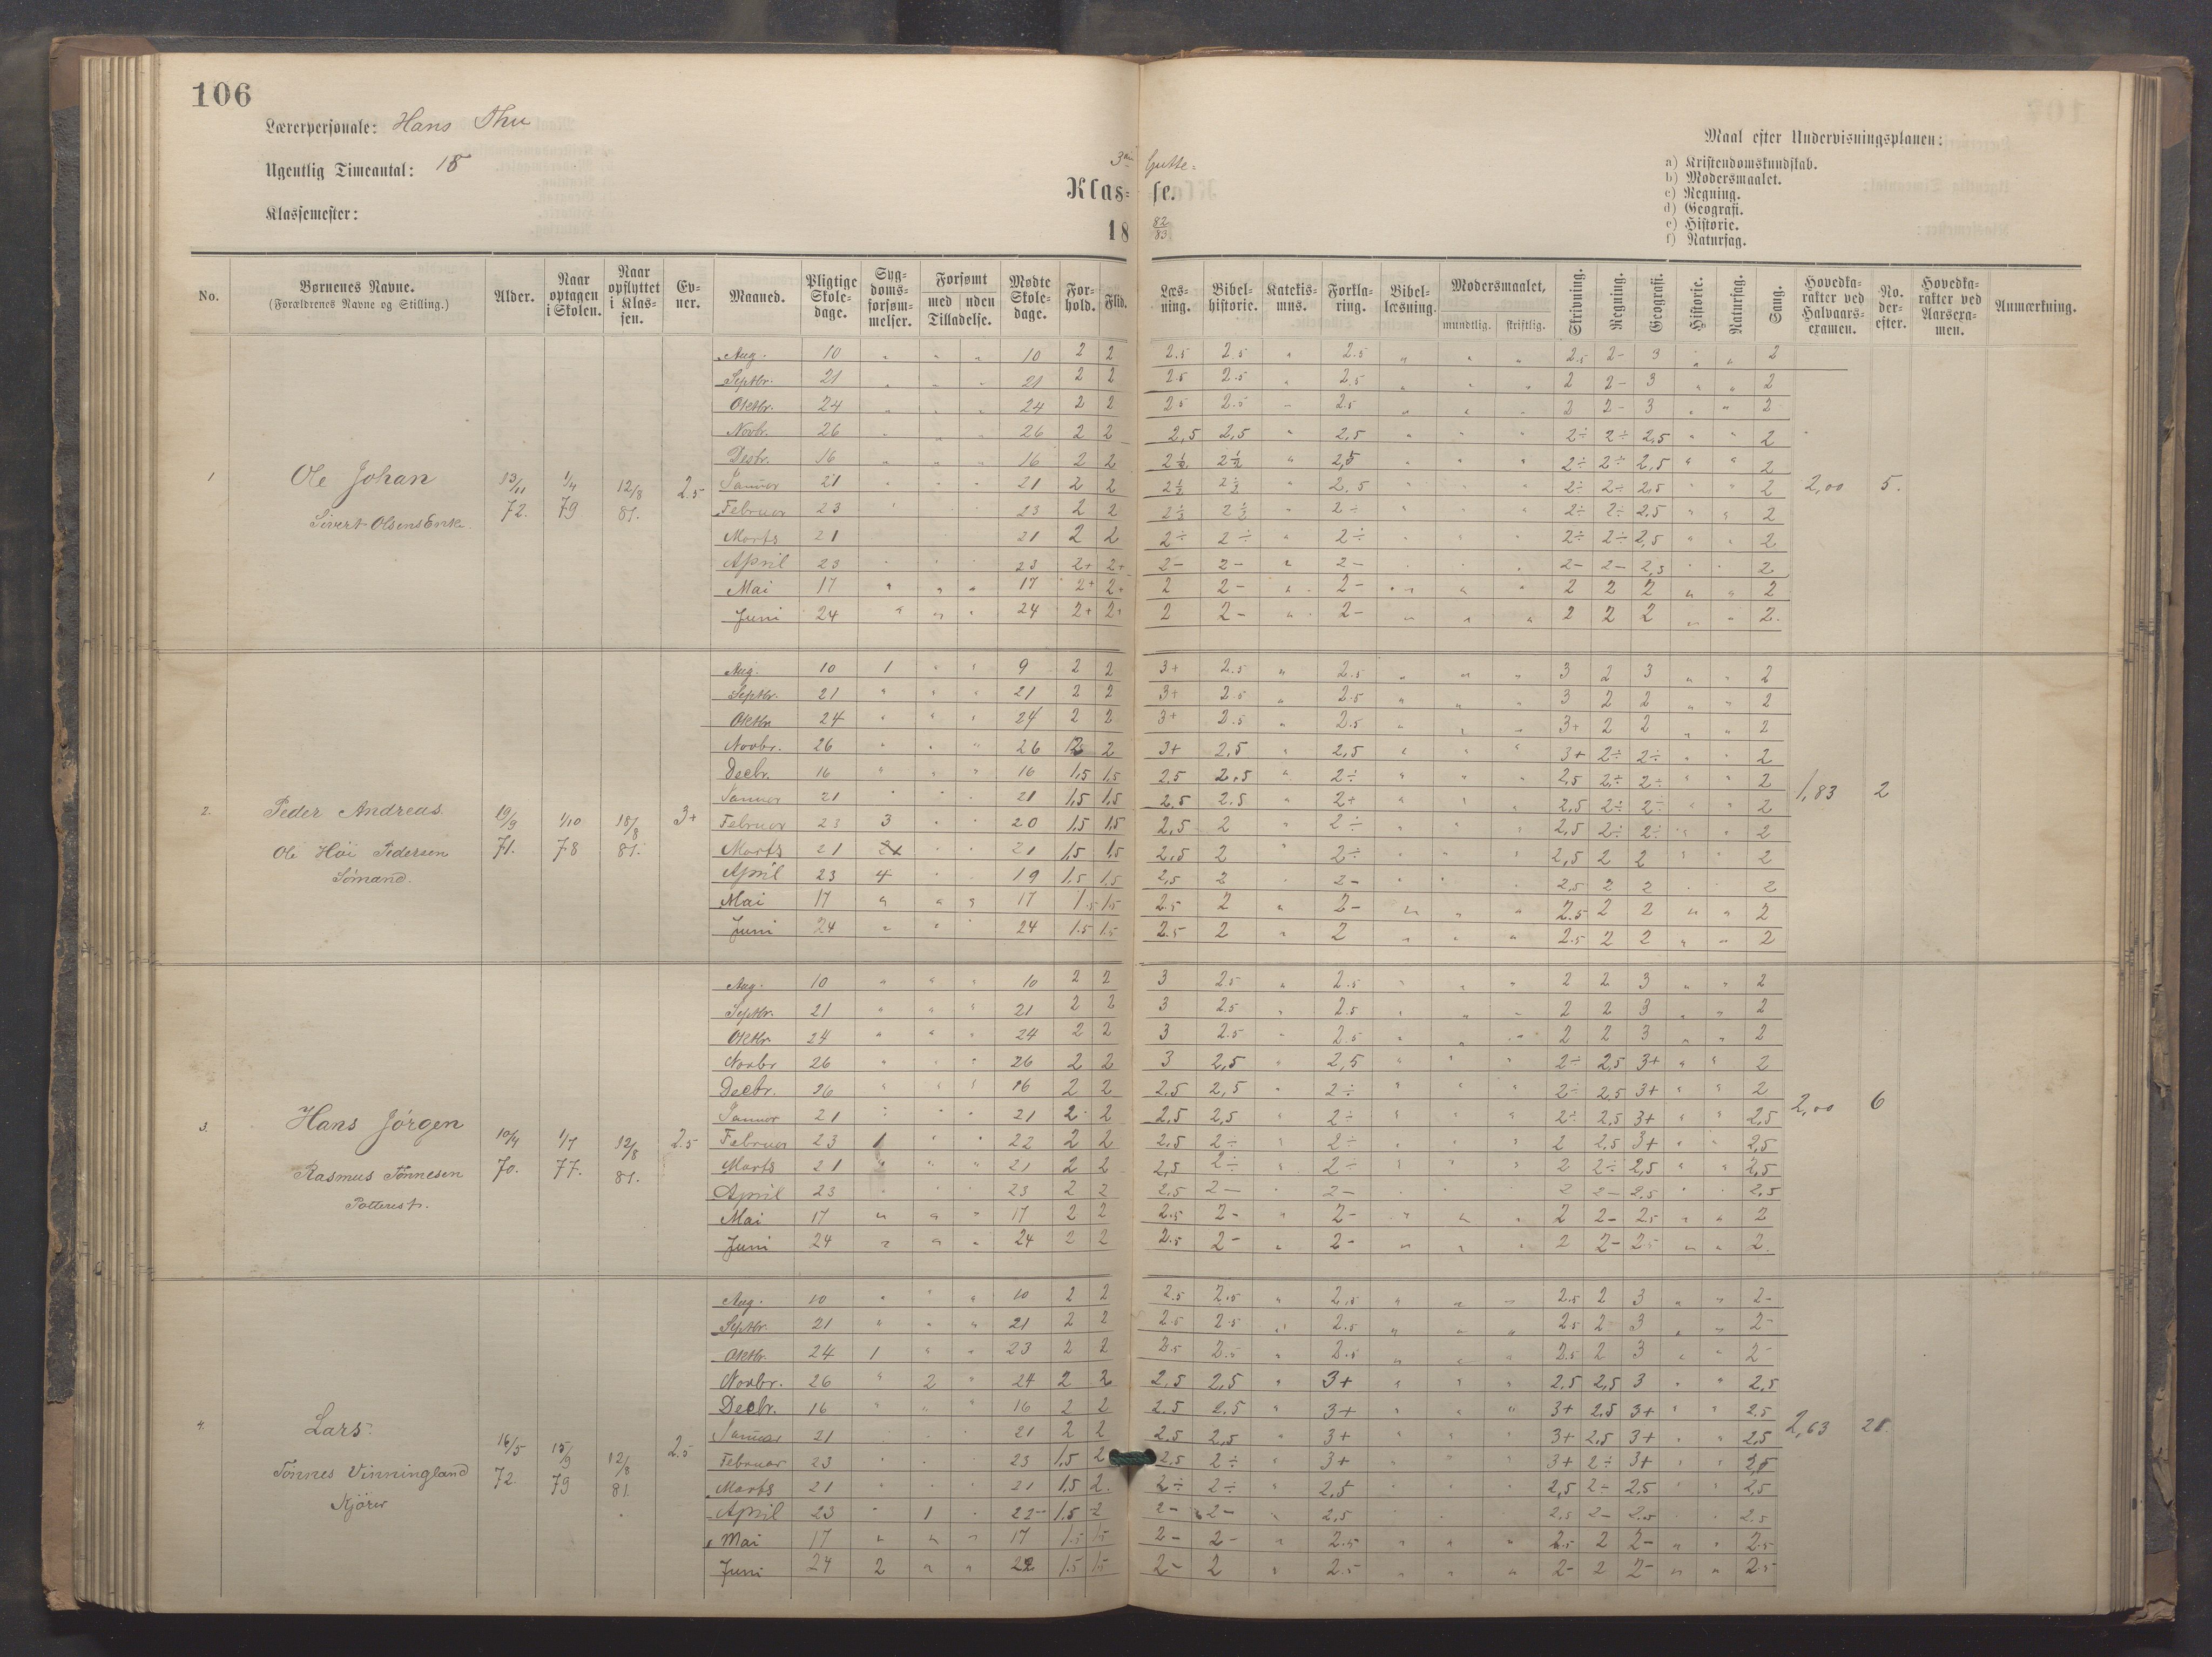 106
Lærerpersonale: Hans Thu
Ugentlig Timeantal: 18
Klassemester:
3die Gutte=
Klas= se.
18 82/83
Maal efter Undervisningsplanen:
a) Kristendomskundskab.
b) Modersmaalet.
c) Regning.
d) Geografi.
e) Historie.
f) Naturfag.
No. Børnenes Navne. (Forældrenes Navne og Stilling.) Alder. Naar optagen i Skolen. Naar opflyttet i Klas-sen. Ev-ner. Maaned. Pligtige Skole-dage. Syg-doms-forsøm-melser. Forsømt med uden Tilladelse. Mødte Skole-dage. For-hold. Flid. Læs-ning. Bibel-historie. Katekis-mus. Forkla-ring. Bibel-læsning. Modersmaalet, mundtlig. skriftlig. Skrivning. Regning. Geografi. Historie. Naturfag. Sang. Hovedka-rakter ved Halvaars-examen. No. der-efter. Hovedka-rakter ved Aarsexa-men. Anmærkning.
1 Ole Johan 13/11 72. 1/4 79 12/8 81. 2.5 2,00 5.
Sivert Olsens Enke.
Aug. 10 " " " 10 2 2 2.5 2.5 " 2.5 " " " 2.5 2- 3 " " 2
Septbr. 21 " " " 21 2 2 2.5 2.5 " 2.5 " " " 2 2- 3 " " 2
Oktbr. 24 " " " 24 2 2 2.5 2.5 " 2.5 " " " 2 2- 3 " " 2
Novbr. 26 " " " 26 2 2 2,5 2,5 " 2,5 " " " 2÷ 2÷ 2,5 " " 2
Decbr. 16 " " " 16 2 2 2½ 2½ " 2,5 " " " 2÷ 2÷ 2,5 " " 2
Januar 21 " " " 21 2 2 2½ 2½ " 2,5 " " " 2÷ 2÷ 2,5 " " 2
Februar 23 " " 23 2 2 2½ 2½ " 2÷ " " " 2÷ 2÷ 2.5 " " 2
Marts 21 21 2 2 2÷ 2÷ " 2÷ " " " 2÷ 2÷ 2,5 " " 2
April 23 " " " 23 2+ 2+ 2- 2- " 2- " " " 2- 2- 2,5 " " 2
Mai 17 " " " 17 2+ 2+ 2 2- " 2- " " " 2 2 2 " " 2
Juni 24 " " " 24 2+ 2+ 2 2- " 2- " " " 2 2 2 " " 2.
2. Peder Andreas. 19/9 71. 1/10 78 18/8 81. 3+ 1,83 2
Ole Høi Pedersen
Sømand.
Aug. 10 1 " " 9 2 2 3+ 2.5 " 2.5 " " " 3 2 3 " " 2
Septbr. 21 " " " 21 2 2 3+ 2.5 " 2.5 " " " 3 2 2 " " 2
Oktbr 24 " " " 24 2 2 3+ 2.5 " 2.5 " " " 3+ 2 2 " " 2
Novbr. 26 " " " 26 2 2 3+ 2,5 " 2,5 " " " 3+ 2÷ 2÷ " " 2
Decbr. 16 " " " 16 1,5 1,5 2.5 2.5 " 2÷ " " " 2,5 2÷ 2÷ " " 2
Januar 21 " " " 21 1,5 1,5 2,5 2.5 " 2+ " " " 2,5 2÷ 2÷ " " 2
Februar 23 3 " " 20 1,5 1,5 2,5 2 " 2÷ " " " 2,5 2÷ 2÷ " " 2
Marts 21 " " 21 1,5 1,5 2,5 2 " 2÷ " " " 2,5 2 2 " " 2
April 23 4 " " 19 1.5 1.5 2,5 2 " 2- " " " 2,5 2 2 " " 2
Mai 17 " " " 17 1.5 1.5 2.5 2 " 2- " " " 2.5 2 2 " " 2
Juni 24 " " 24 1.5 1.5 2.5 2 " 2 " " " 2.5 2 2 " " 2
3. Hans Jørgen 10/4 70. 1/7 77. 12/8 81. 2.5 2,00 6
Rasmus Tønnesen
Aug. 10 " " " 10 2 2 3 2.5 " 2.5 " " " 2 2 3 " " 2
Septbr. 21 " " " 21 2 2 3 2.5 " 2.5 " " " 2 2 3 " " 2
Oktbr 24 " " " 24 2 2 3 2.5 " 2.5 " " " 2 2 3 " " 2
Novbr 26 " " " 26 2 2 3 2,5 " 2,5 " " " 2÷ 2,5 3+ " " 2
Decbr. 16 " " " 16 2 2 2,5 2,5 " 2÷ " " " 2÷ 2,5 3+ " " 2
Januar 21 " " " 21 2 2 2,5 2,5 " 2÷ " " " 2÷ 2,5 3+ " " 2,5
Februar 23 1 " " 22 2 2 2,5 2÷ " 2÷ " " " 2 2,5 3+ " " 2,5
Marts 21 " " " 21 2 2 2,5 2÷ " 2÷ " " " 2 2÷ 2,5 " " 2,5
April 23 " " " 23 2 2 2.5 2- " 2- " " " 2 2- 2.5 " " 2,5
Mai 17 " " " 17 2 2 2.5 2- " 2- " " " 2 2- 2.5 " " 2
Juni 24 " " " 24 2 2 2.5 2- " 2- " " " 2 2- 2.5 " " 2.
4. Lars. 16/5 72. 15/9 79 12/8 81. 2.5 2,63 21.
Tönnes Vinningland
Aug. 10 " " " 10 2 2 2.5 2.5 " 2.5 " " " 2.5 2 3 " " 2-
Septbr. 21 " " " 21 2 2 2.5 2.5 " 2.5 " " " 2.5 2 3 " " 2-
Oktbr. 24 1 " " 23 2 2 2.5 2.5 " 2.5 " " " 2.5 2 3 " " 2-
Novbr. 26 " 2 " 24 2 2 2.5 2,5 " 3+ " " " 2.5 2,5 3 " " 2,5
Decbr. 16 " " " 16 2 2 2.5 2.5 " 3+ " " " 3+ 2,5 3+ " " 2.5
Januar 21 21 2 2 2.5 2,5 " 3+ " " " 3+ 2,5 3+ " " 2,5
Februar 23 " " " 23 1,5 2 2,5 2÷ " 3+ " " " 3+ 2÷ 3+ " " 2,5
Marts 21 " " " 21 1,5 2. 2÷ 2÷ " 2,5 " " " 2,5 2÷ 2,5 " " 2,5
April 23 " 1 " 22 1.5 2 2- 2- " 2,5 " " " 2,5 2- 2.5 " " 2.5
Mai 17 " " " 17 1.5 1.5 2- 2- " 2.5 " " " 2.5 2 2- " " 2.5
Juni 24 2 " " 22 1.5 1.5 2- 2 " 2.5 " " " 2- 2 2- " " 2.5